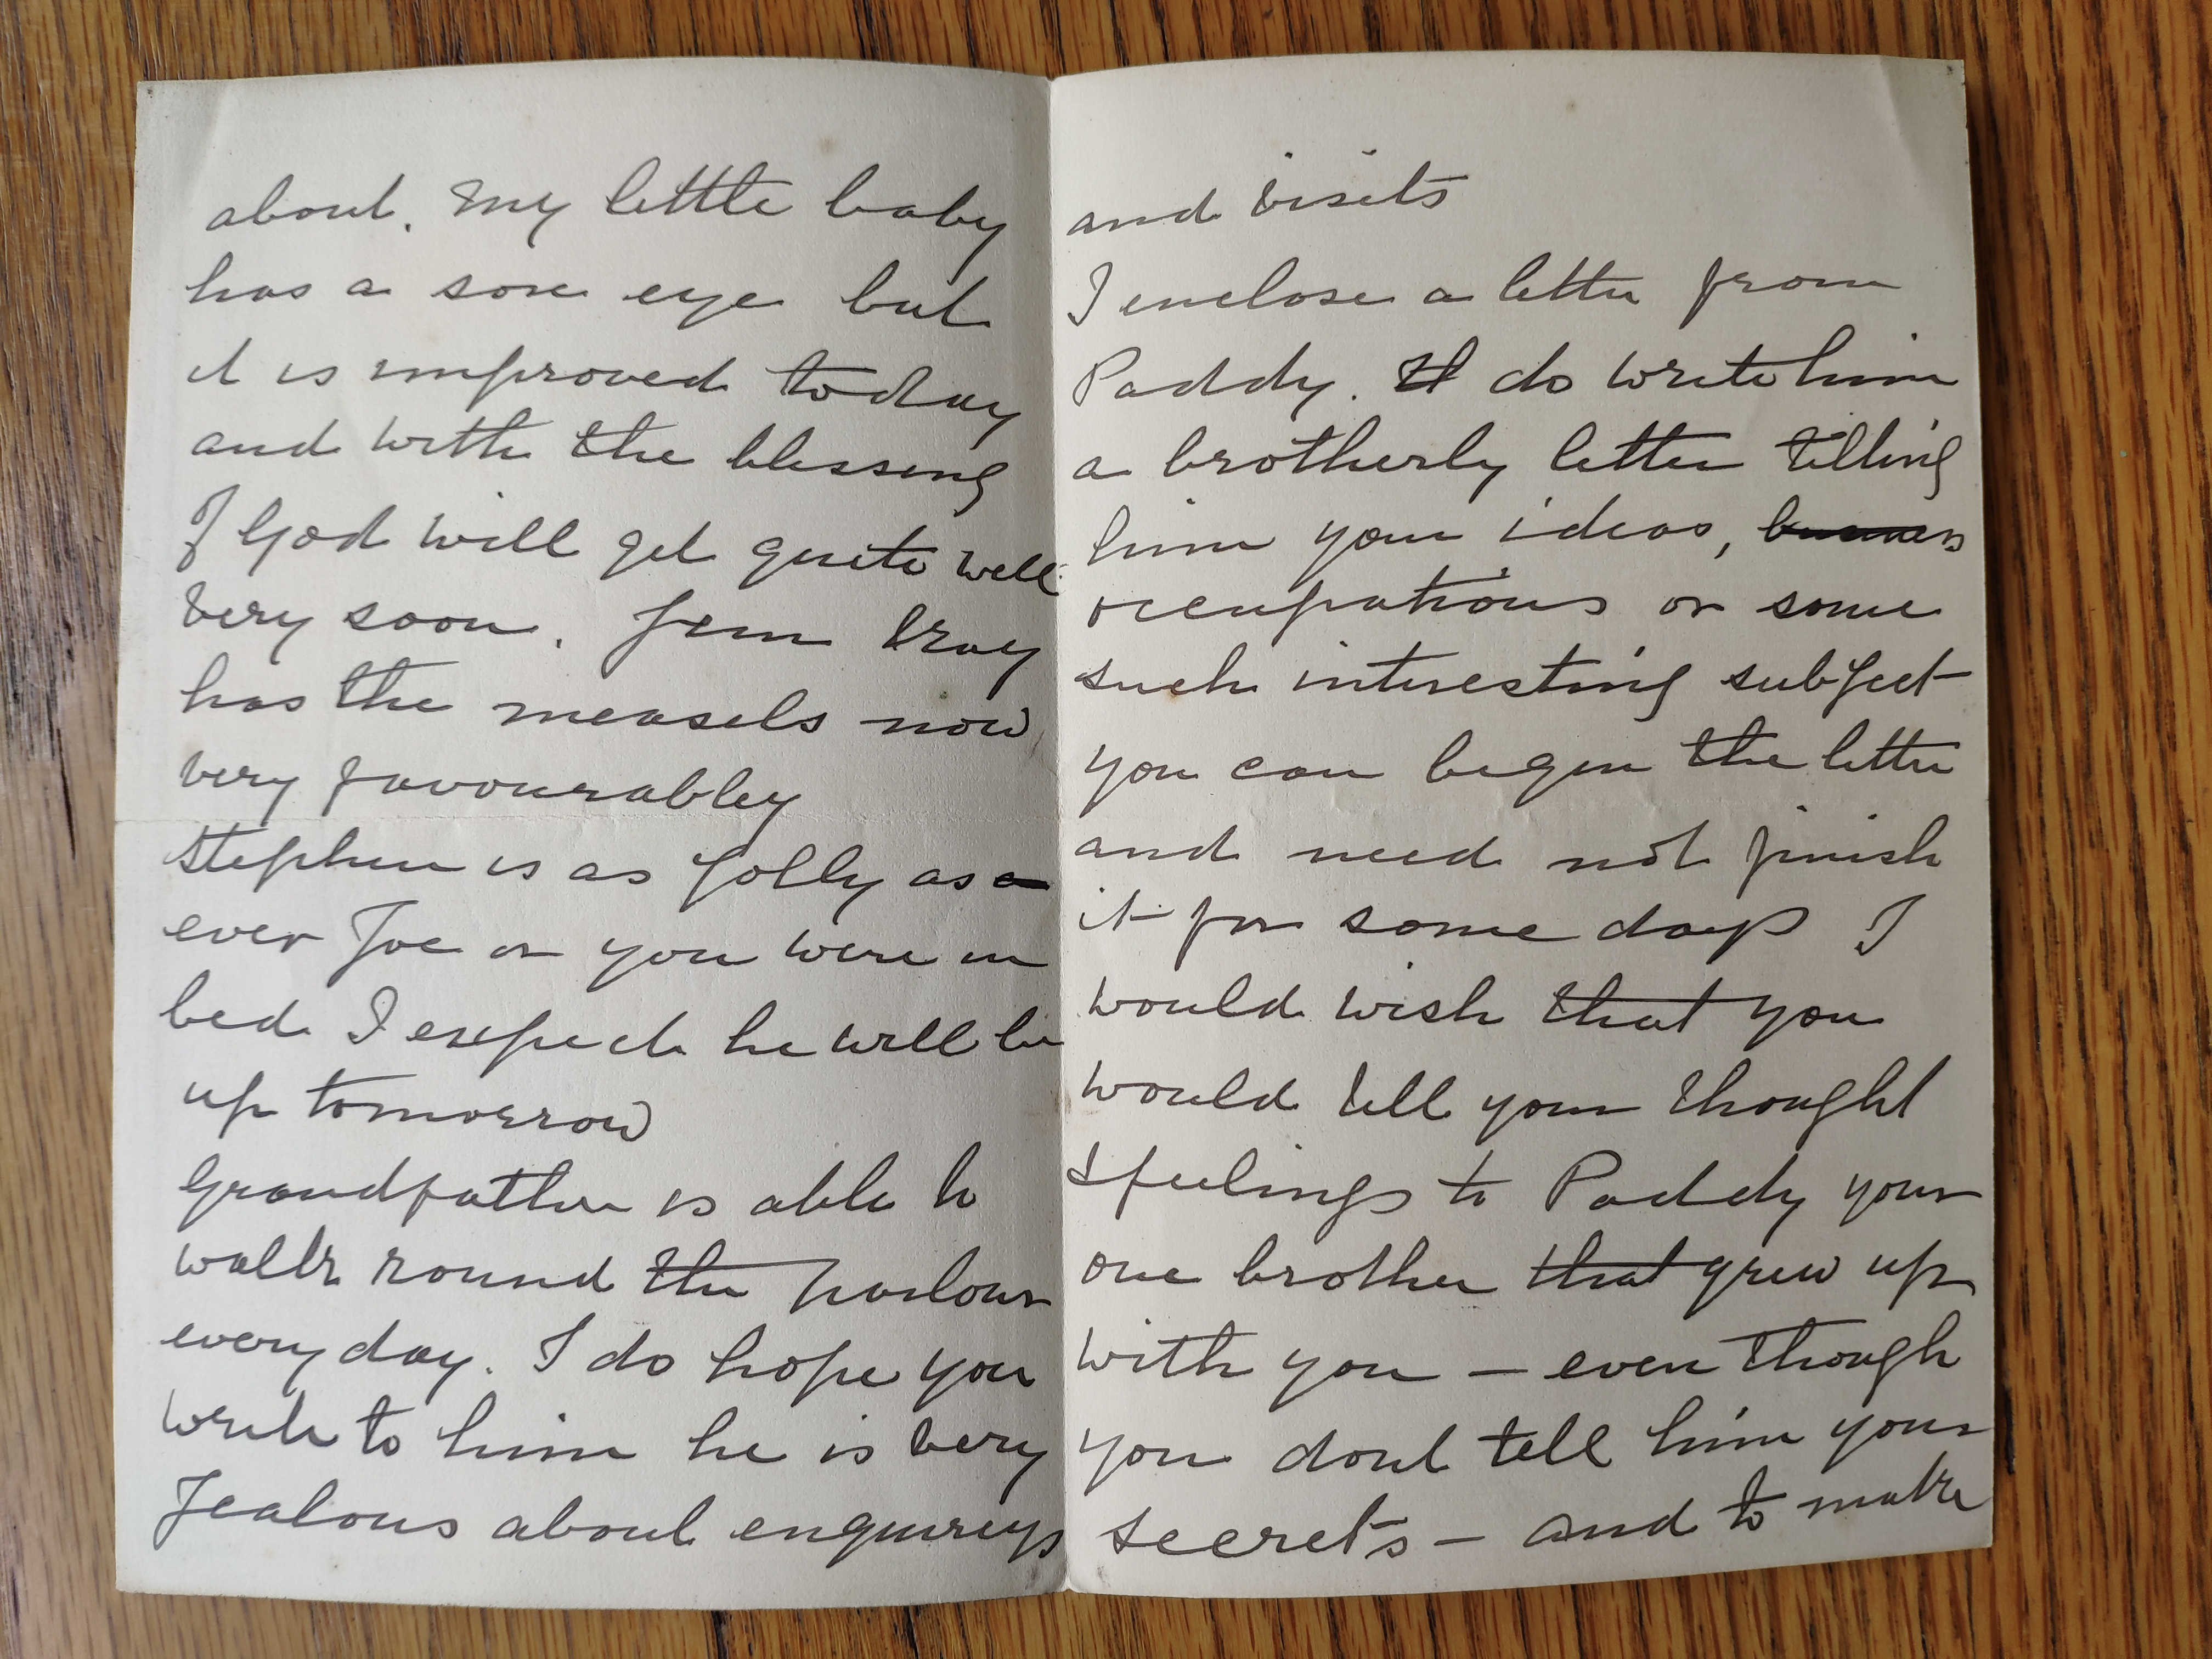 about. My little baby
has a sore eye but
it is improved today
and with the blessing
of God will get quite well
very soon. Jem
has the measels now
very favourabley
Stephen is as jolly as
ever Joe or you were in
bed I expect he will be
up tomorrow
Grandfather is able to
walk round the parlour
every day. I do hope you
write to him he is very
Jealous about enquireys
and visits
I enclose a letter from
Paddy. do write him
a brotherly letter telling
him your ideas,
occupations or some
such interesting subject
you can begin the letter
and need not finish
it for some days I
would wish that you
would tell your thought
& feelings to Paddy your
one brother that grew up
with you — even though
you dont tell him your
secrets — and to make